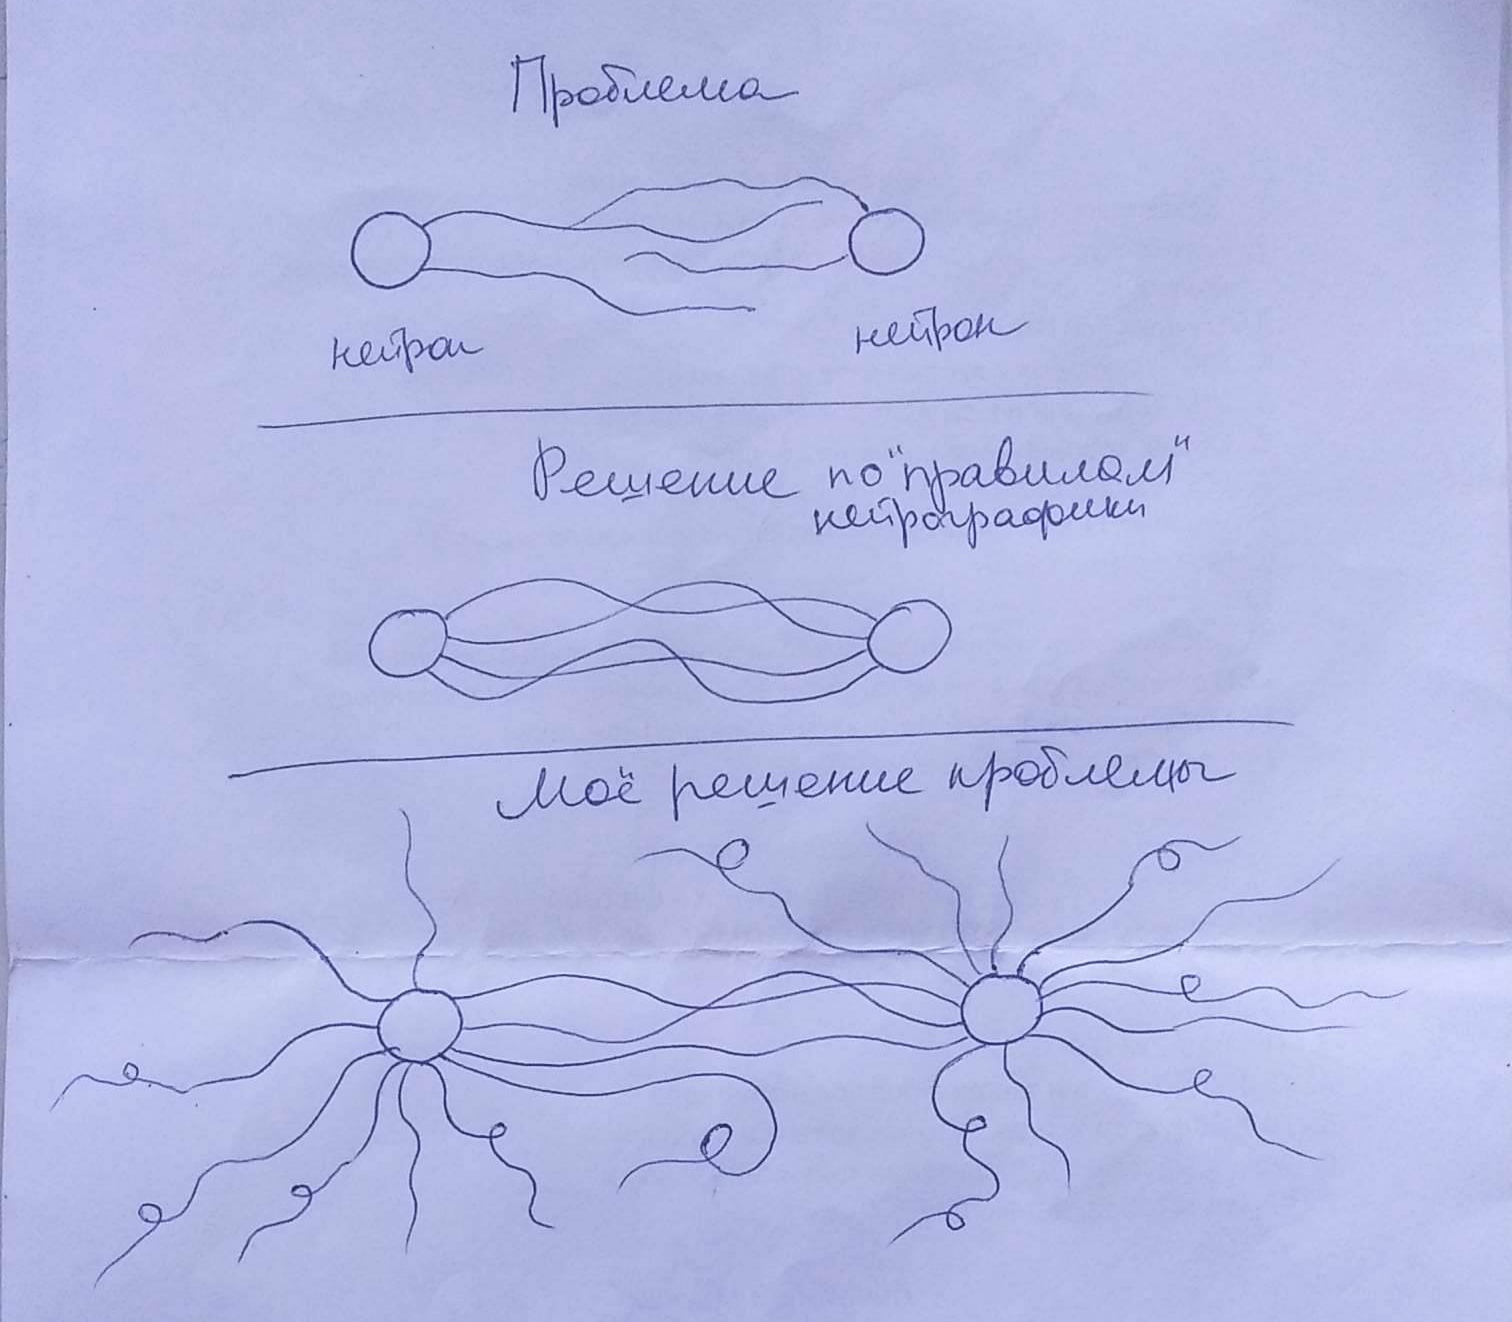 Проблема
нейрон
нейрон
Решение по "правилам"
нейрографики
Моё решение проблемы